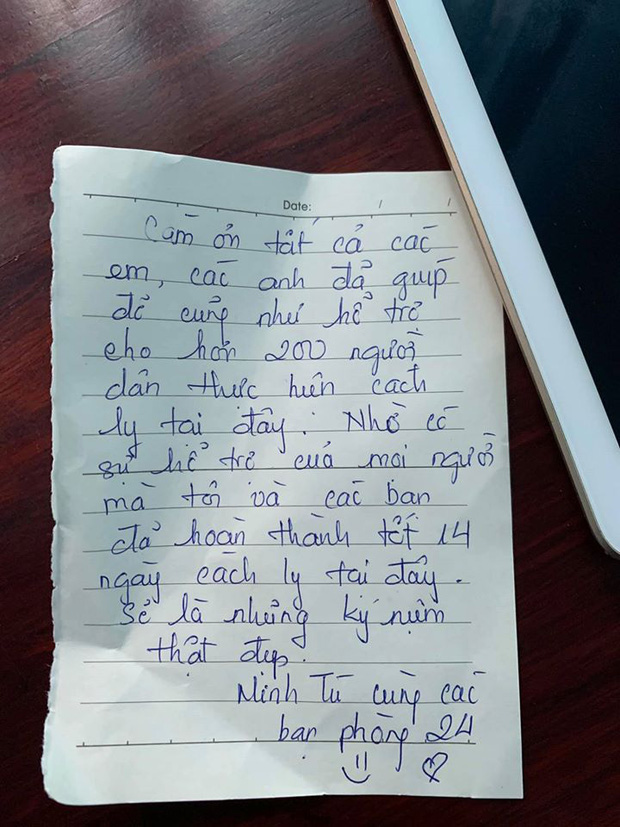 Date: / /
Cảm ơn tất cả các
em, các anh đã giúp
đỡ cũng như hổ trợ
cho hơn 200 người
dân thực hiện cách
ly tại đây. Nhờ có
sự hổ trợ của mọi người
mà tôi và các bạn
đã hoàn thành tốt 14
ngày cách ly tại đây.
Sẽ là những ký niệm
thật đẹp.
Minh Tú cùng các
bạn phòng 24